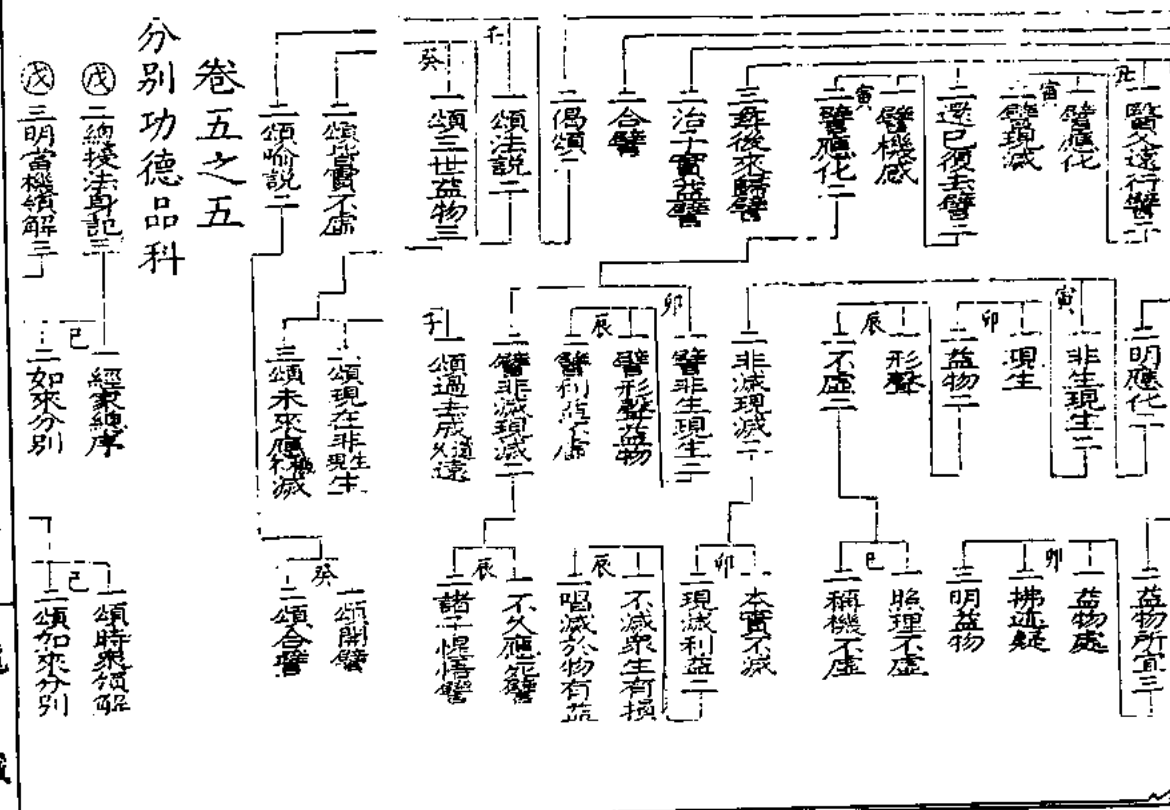 丑
一醫久遠行譬二
一譬應化
寅
二譬現滅
二還已復去譬二
一譬機感
寅
二譬應化二
三尋後來歸譬
二治子實益譬
二合譬
二偈頌二
壬
一頌法說二
癸
一頌三世益物三
二頌皆實不虛
二頌喻說二
卷五之五
分別功德品科
戊
二總授法身記三
戊
三明當機領解三
二明應化二
寅
一非生現生二
一現生
卯
二益物二
一形聲
辰
二不虛二
二非滅現滅二
卯
一譬非生現生二
一譬形聲益物
辰
二譬利益不虛
二譬非滅現滅二
子
一頌過去成道久遠
二頌現在非生現生
三頌未來應機不滅
一經家總序
己
二如來分別
二益物所宜三
一益物處
卯
二拂迹疑
三明益物
一照理不虛
巳
二稱機不虛
一本實不滅
卯
二現滅利益二
一不滅眾生有損
辰
二唱滅於物有益
一不久應死譬
辰
二諸子惺悟譬
一頌開譬
癸
二頌合譬
一頌時眾領解
己
二頌如來分別